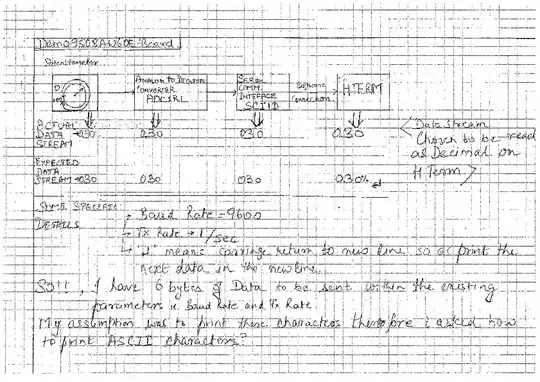 Demo9S08AW60E Board
Potentiometer
ANALOG TO DIGITAL
CONVERTER
SERIAL
COMM.
INTERFACE
SCI1D
Software
Connection
H TERM
ACTUAL
DATA
STREAM
030
030
030
030
Data stream
Chosen to be read
as Decimal on
H Term
EXPECTED
DATA
STREAM
030
030
030
030%
SOME SPECIFIC
DETAILS
Baud Rate = 9600
Tx Rate → 1/sec
"↲" means carriage return to new line so as print the
next data in the new line.
SO!!, I have 6 bytes of Data to be sent within the existing
parameters ie Baud Rate and Tx Rate.
My assumption was to print these characters therefore i asked how
to print ASCII characters?